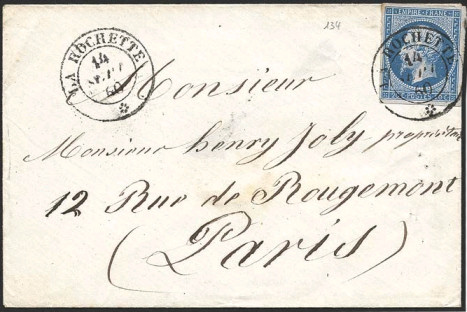 134
LA ROCHETTE
14
SEPT
60
EMPIRE FRANC
ROCHETTE
14
60
Monsieur
Monsieur henry Joly propriétre
12 Rue de Rougemont
(Paris)